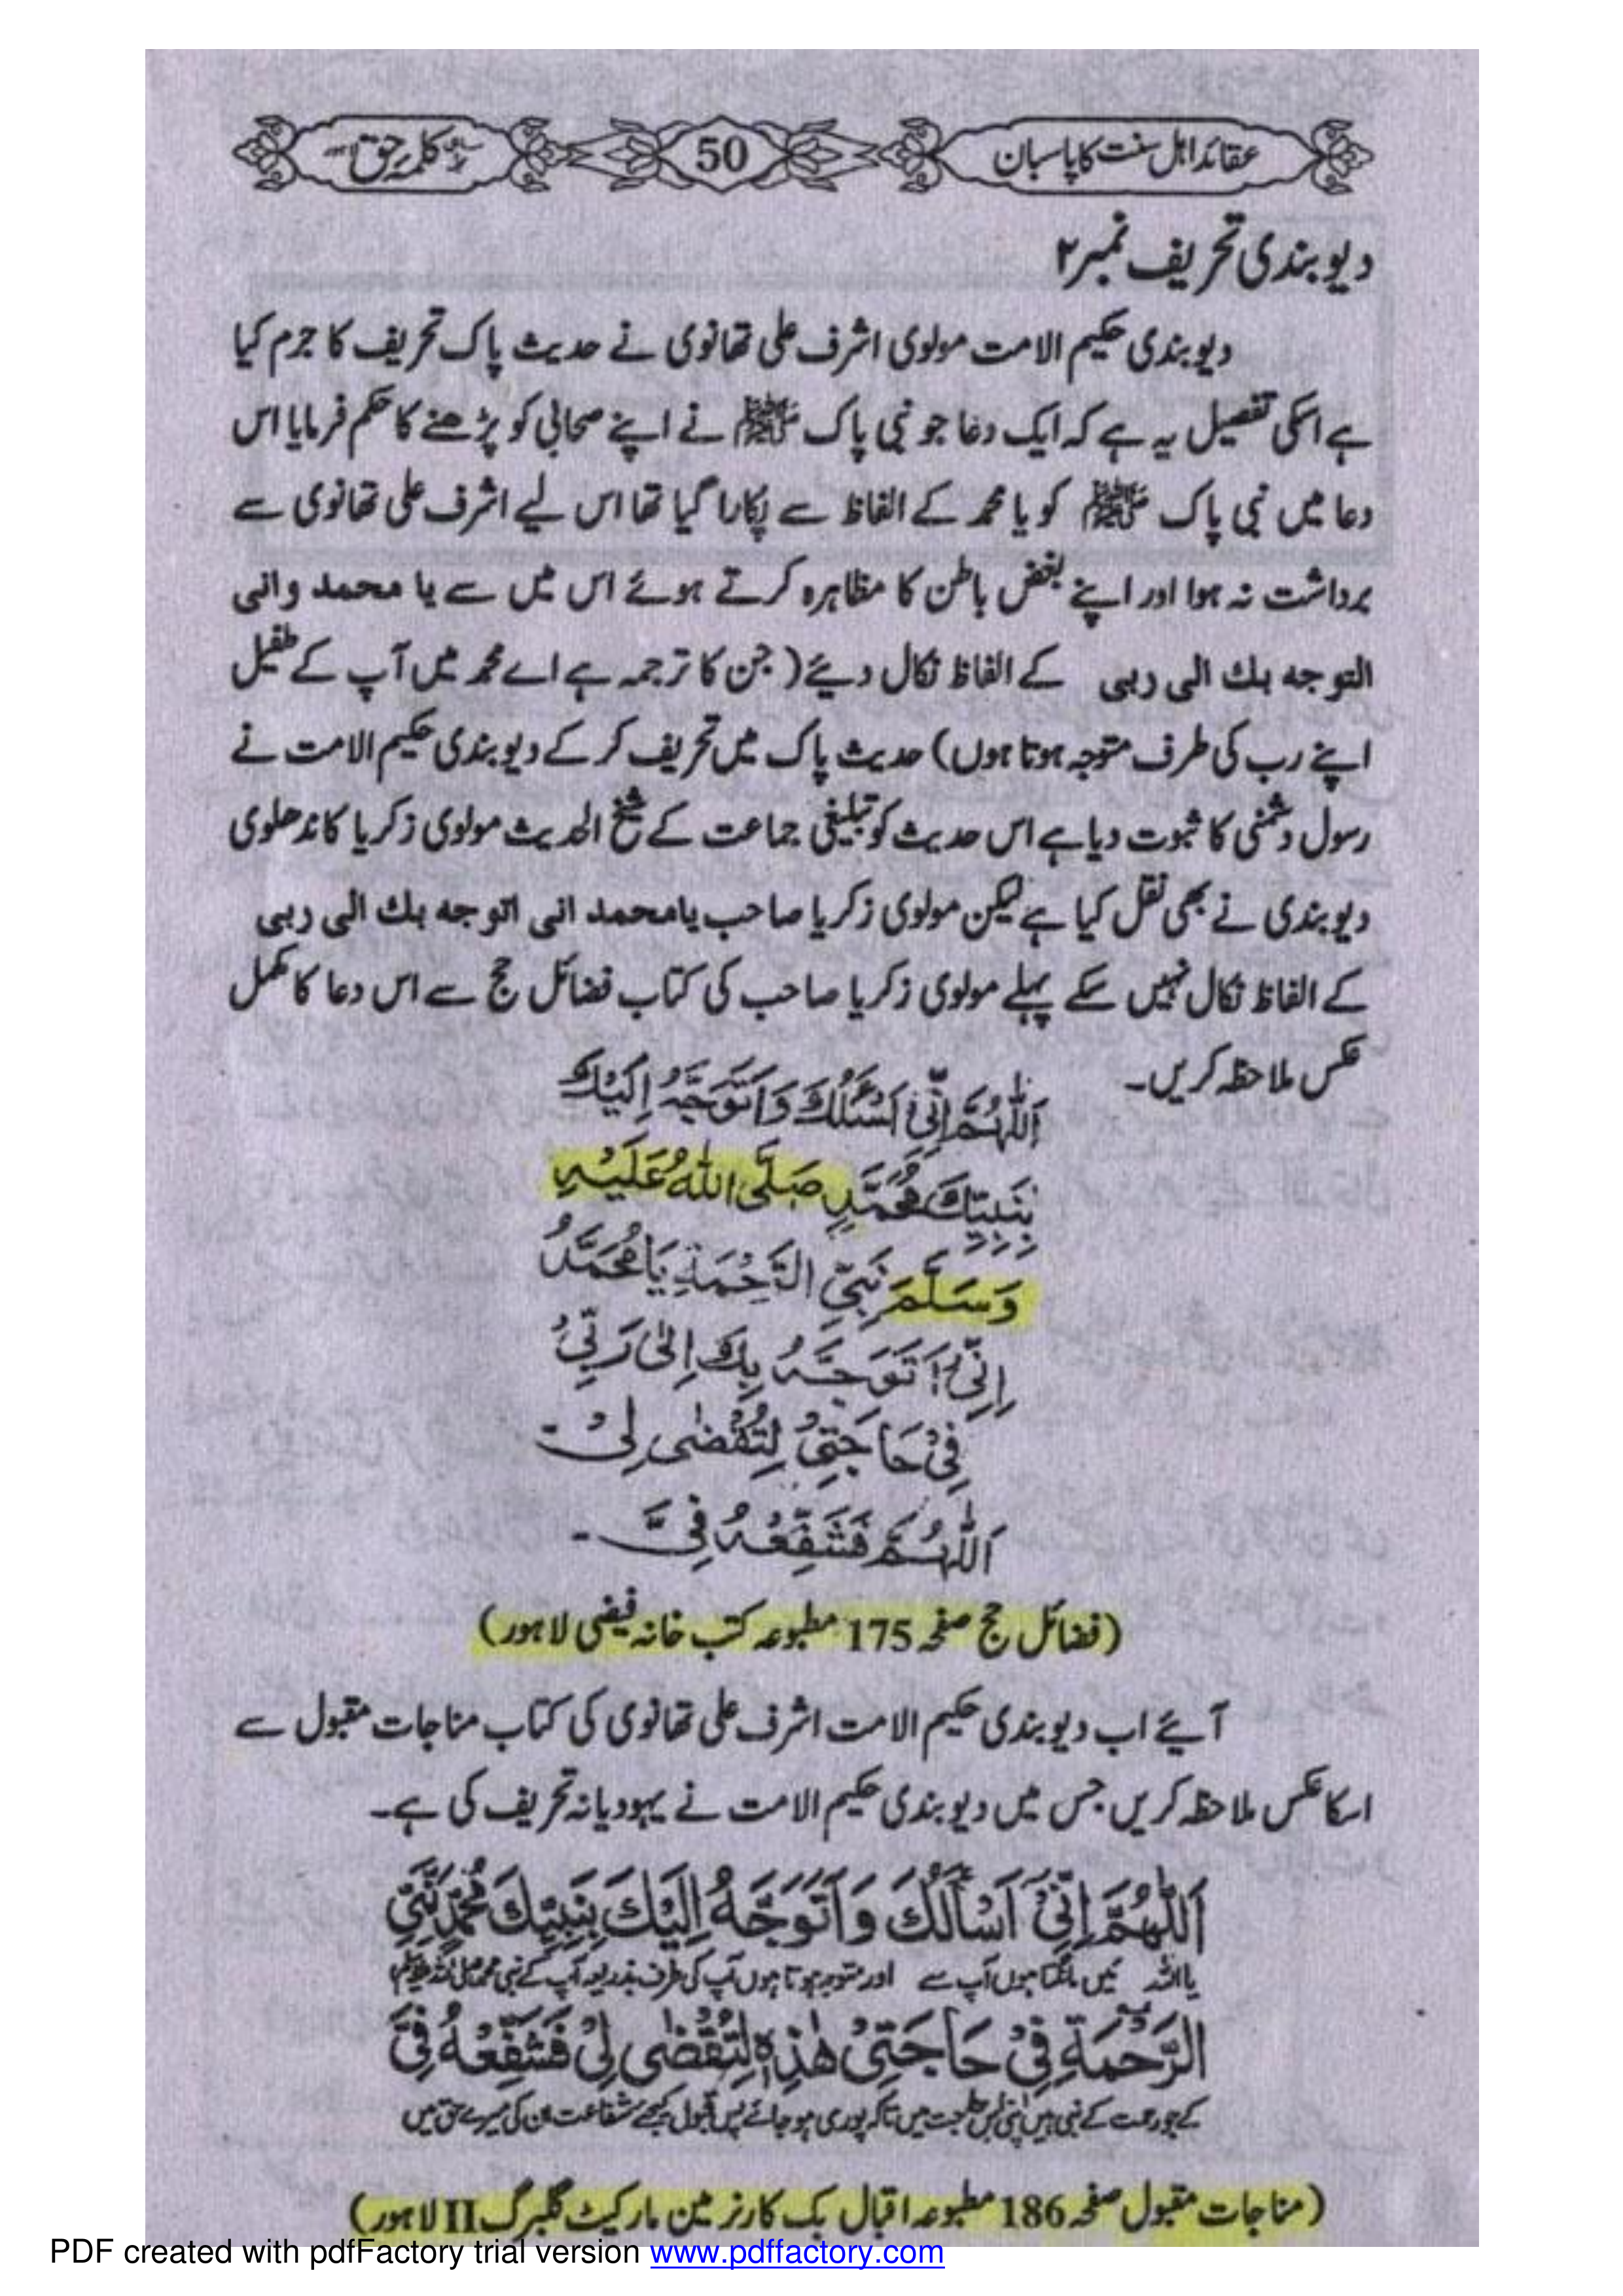 عقائد اہل سنت کا پاسبان
50
سہ ماہی کلمہ حق لاہور
دیوبندی تحریف نمبر ۲
دیوبندی حکیم الامت مولوی اشرف علی تھانوی نے حدیث پاک تحریف کا جرم کیا
ہے اسکی تفصیل یہ ہے کہ ایک دعا جو نبی پاک ﷺ نے اپنے صحابی کو پڑھنے کا حکم فرمایا اس
دعا میں نبی پاک ﷺ کو یا محمد کے الفاظ سے پکارا گیا تھا اس لیے اشرف علی تھانوی سے
برداشت نہ ہوا اور اپنے بغض باطن کا مظاہرہ کرتے ہوئے اس میں سے یا محمد وانی
التوجه بك الى ربى کے الفاظ نکال دیئے (جن کا ترجمہ ہے اے محمد میں آپ کے طفیل
اپنے رب کی طرف متوجہ ہوتا ہوں) حدیث پاک میں تحریف کر کے دیوبندی حکیم الامت نے
رسول دشمنی کا ثبوت دیا ہے اس حدیث کو تبلیغی جماعت کے شیخ الحدیث مولوی زکریا کاندھلوی
دیوبندی نے بھی نقل کیا ہے لیکن مولوی زکریا صاحب یامحمد انی اتوجه بك الى ربى
کے الفاظ نکال نہیں سکے پہلے مولوی زکریا صاحب کی کتاب فضائل حج سے اس دعا کا مکمل
عکس ملاحظہ کریں۔
اَللّٰهُمَّ اِنِّیْ اَسْئَلُكَ وَاَتَوَجَّهُ اِلَیْكَ
بِنَبِیِّكَ مُحَمَّدٍ صَلَّی اللهُ عَلَیْهِ
وَسَلَّمَ نَبِیِّ الرَّحْمَةِ یَا مُحَمَّدُ
اِنِّیْ اَتَوَجَّهُ بِكَ اِلٰی رَبِّیْ
فِیْ حَاجَتِیْ لِتُقْضٰی لِیْ۔
اَللّٰهُمَّ فَشَفِّعْهُ فِیَّ۔
(فضائل حج صفحہ 175 مطبوعہ کتب خانہ فیضی لاہور)
آیئے اب دیوبندی حکیم الامت اشرف علی تھانوی کی کتاب مناجات مقبول سے
اسکا عکس ملاحظہ کریں جس میں دیوبندی حکیم الامت نے یہودیانہ تحریف کی ہے۔
اَللّٰهُمَّ اِنِّیْۤ اَسْاَلُكَ وَاَتَوَجَّهُ اِلَیْكَ بِنَبِیِّكَ مُحَمَّدٍ نَّبِیِّ
یا اللہ میں مانگتا ہوں آپ سے اور متوجہ ہوتا ہوں آپ کی طرف بذریعہ آپ کے نبی محمد صلی اللہ علیہ وسلم
الرَّحْمَةِ فِیْ حَاجَتِیْ هٰذِهٖ لِتُقْضٰی لِیْ فَشَفِّعْهُ فِیَّ
کے جو رحمت کے نبی ہیں اپنی اس حاجت میں تاکہ پوری ہو جائے پس قبول کیجیے شفاعت ان کی میرے حق میں
(مناجات مقبول صفحہ 186 مطبوعہ اقبال بک کارنر مین مارکیٹ گلبرگ II لاہور)
PDF created with pdfFactory trial version www.pdffactory.com